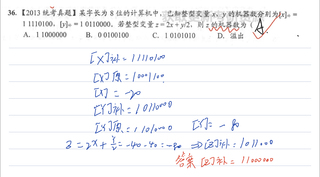 36.【2013 统考真题】某字长为 8 位的计算机中，已知整型变量 x、y 的机器数分别为[x]补=
1 1110100，[y]补= 1 0110000。若整型变量 z = 2x + y/2，则 z 的机器数为（ A ）
A. 1 1000000 B. 0 0100100 C. 1 0101010 D. 溢出
[X]补 = 11110100
[X]原 = 10001100
[X] =
[Y]补 = 10110000
[Y]原 = 11010000 [Y] = -80
Z = 2X + Y/2 = -40-40 = -80 ⇒ [Z]补 = 1011000
答案 [Z]补 = 11000000